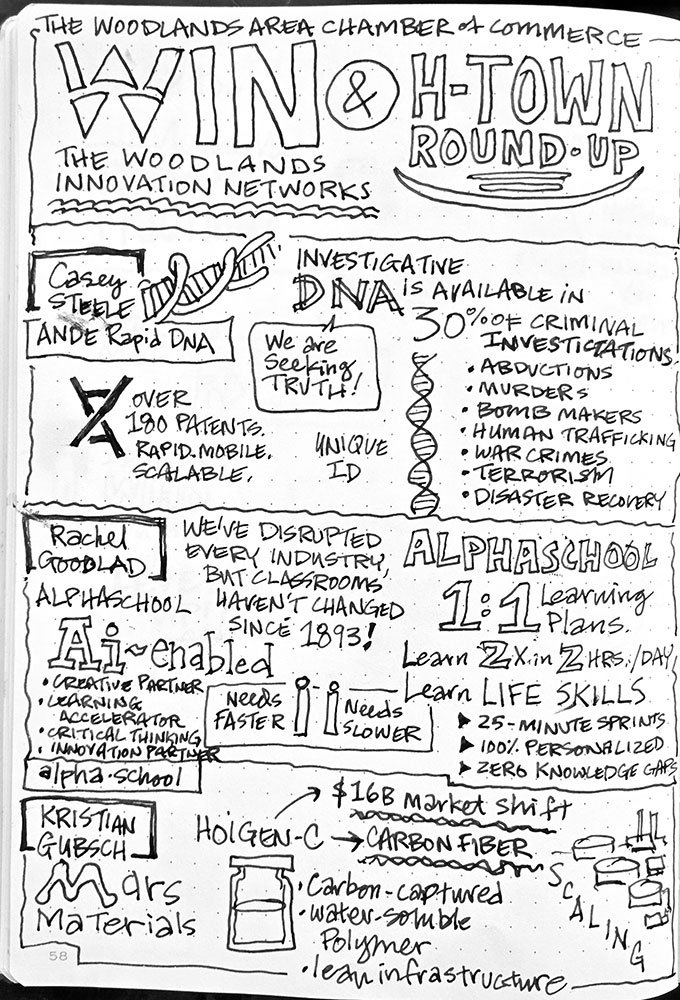 THE WOODLANDS AREA CHAMBER of COMMERCE
WIN & H-TOWN
ROUND-UP
THE WOODLANDS
INNOVATION NETWORKS
Casey
STEELE
ANDE Rapid DNA
INVESTIGATIVE
DNA IS AVAILABLE IN
30% OF CRIMINAL
INVESTIGTATIONS
• ABDUCTIONS
• MURDERS
• BOMB MAKERS
• HUMAN TRAFFICKING
• WAR CRIMES
• TERRORISM
• DISASTER RECOVERY
We are
Seeking
TRUTH!
OVER
180 PATENTS.
RAPID. MOBILE.
SCALABLE.
UNIQUE
ID
Rachel
GOODLAD
ALPHASCHOOL
Ai-enabled
• CREATIVE PARTNER
• LEARNING
ACCELERATOR
• CRITICAL THINKING
• INNOVATION PARTNER
alpha.school
WE'VE DISRUPTED
EVERY INDUSTRY,
BUT CLASSROOMS
HAVEN'T CHANGED
SINCE 1893!
NEEDS
FASTER
NEEDS
SLOWER
ALPHASCHOOL
1:1 Learning
Plans.
Learn 2X in 2 HRS./DAY
Learn LIFE SKILLS
▶ 25-MINUTE SPRINTS
▶ 100% PERSONALIZED
▶ ZERO KNOWLEDGE GAPS
KRISTIAN
GUBSCH
Mars
Materials
HOIGEN-C → $16B Market Shift
→ CARBON FIBER
• Carbon-captured
• water-soluble
Polymer
• lean infrastructure
SCALING
58